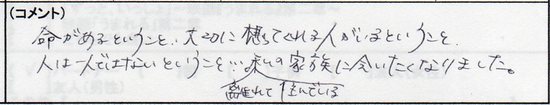 (コメント)
命があるということ、大切に想ってくれる人がいるということ、
人は一人ではないということ…。私の家族に会いたくなりました。
離れて住んでいる